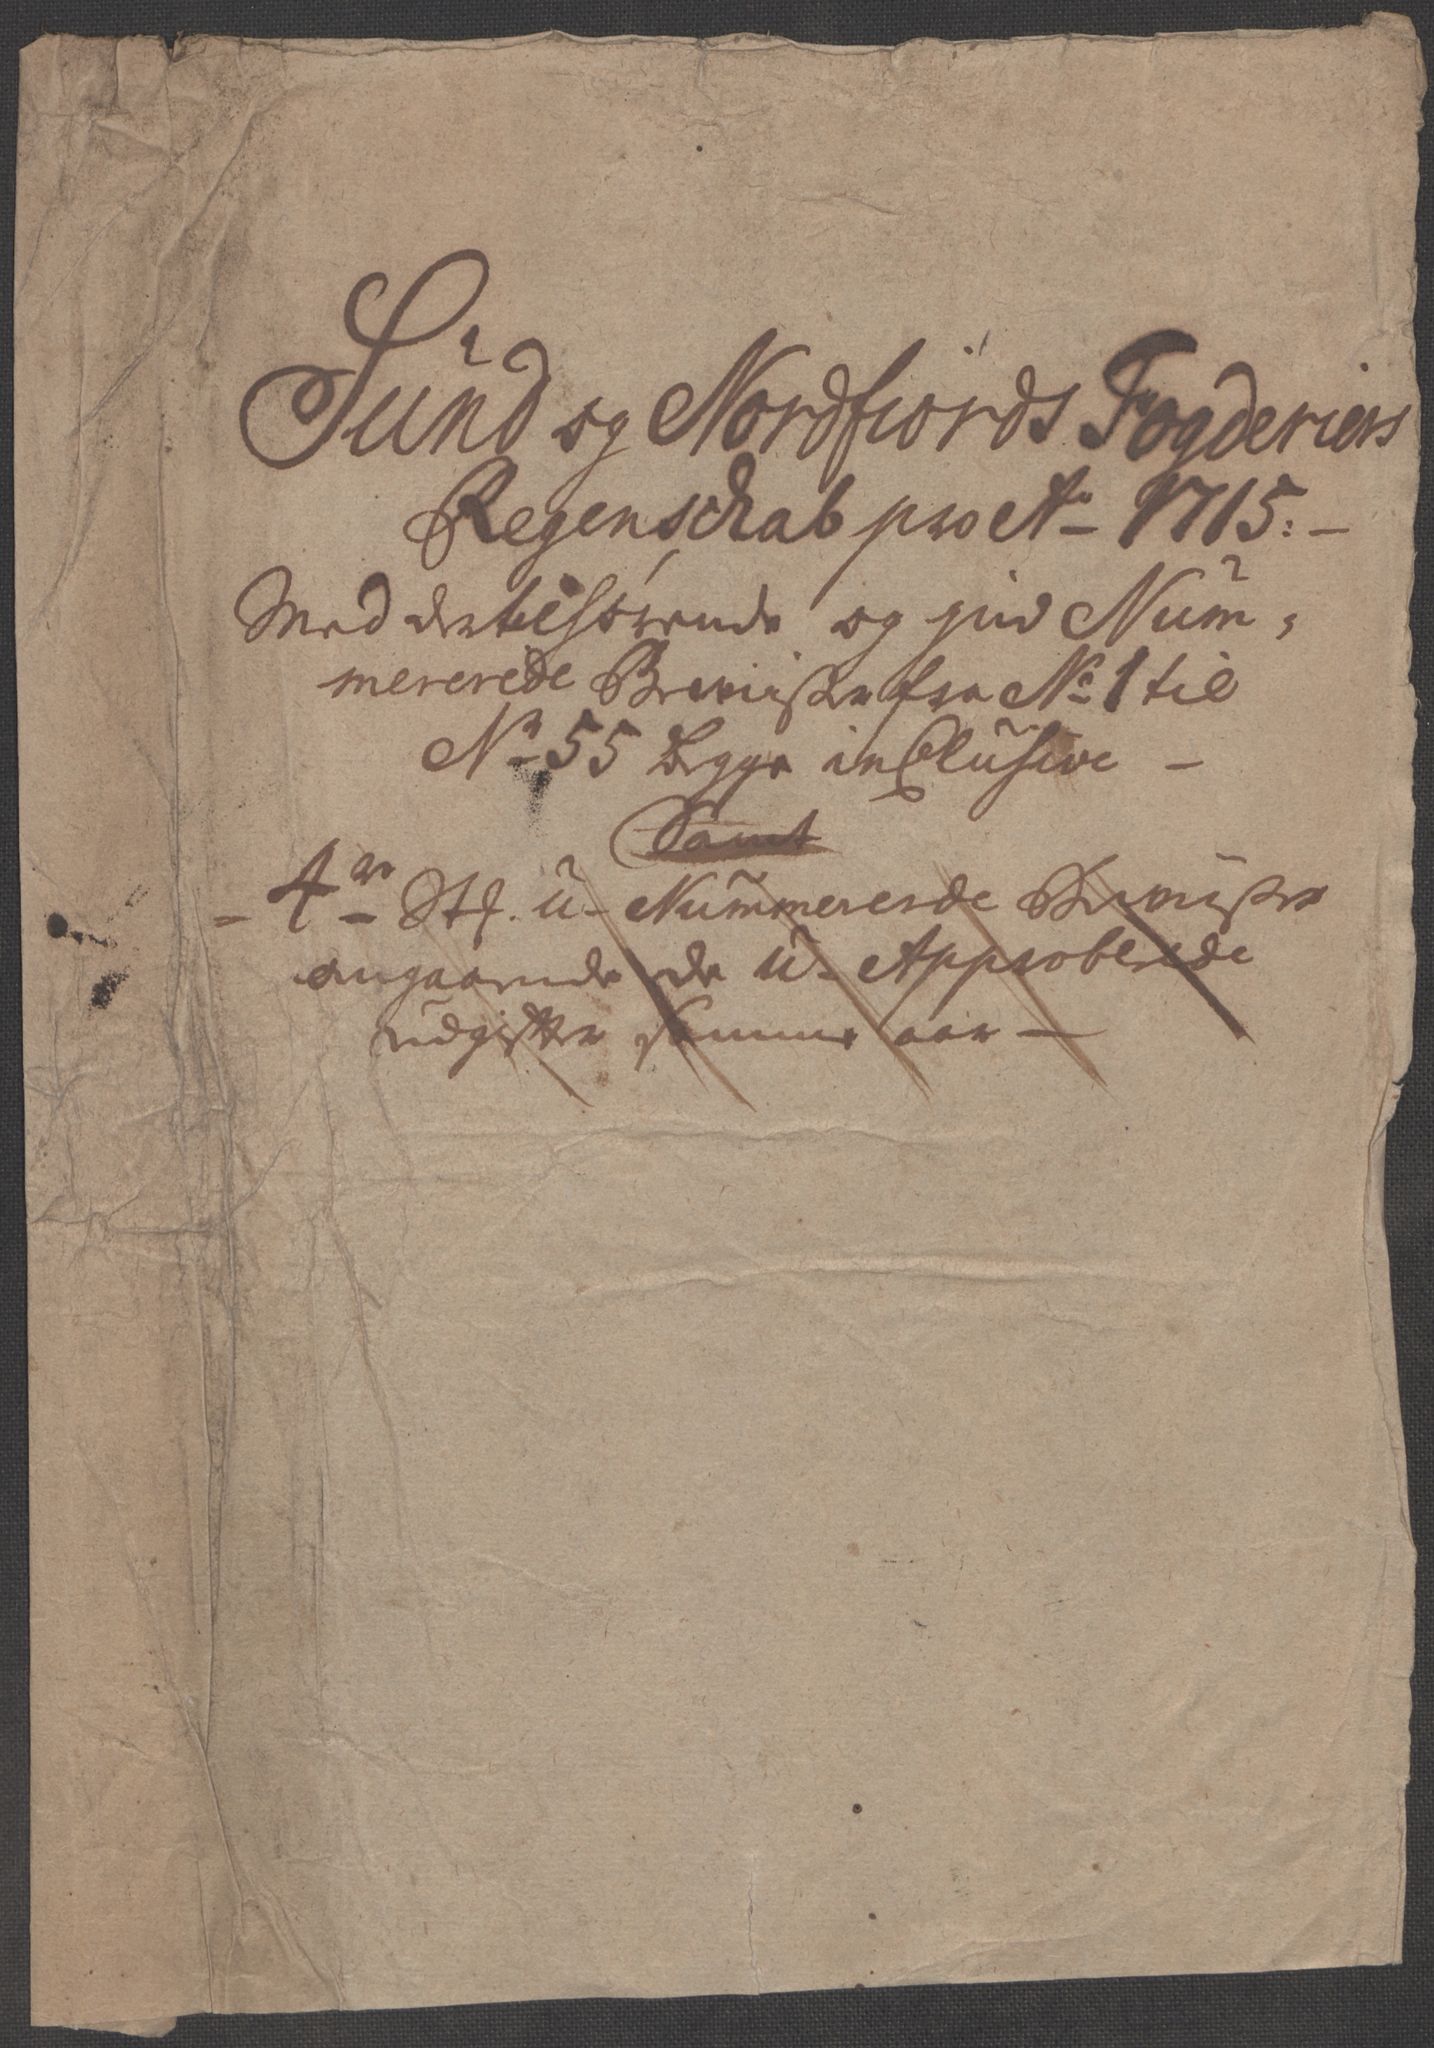 Sünd og Nordfiords Fogderiers
Regenschab pro Ao 1715:
Med der til hørende og Num,
mererede Beviiser fra No 1 til
No 55 begge inclusive
Samt
4re St. u-Nummererede Beviiser
angaaende de u-Approberede
udgifter samme aar